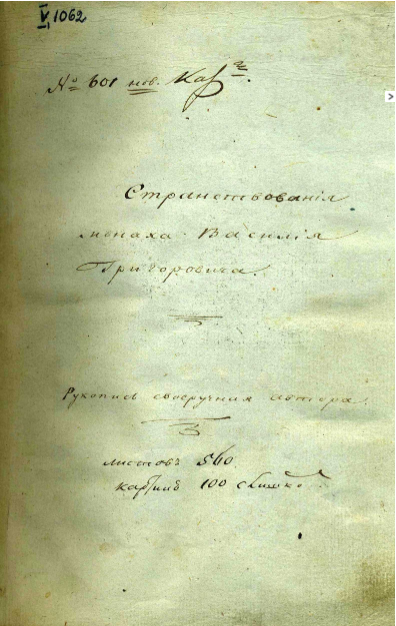 V, 1062
№ 601 нов. Кат
Странствованія
монаха Василія
Григоровича.
Рукопись своеручная автора.
листовъ 560.
картинъ 100 слишкомъ